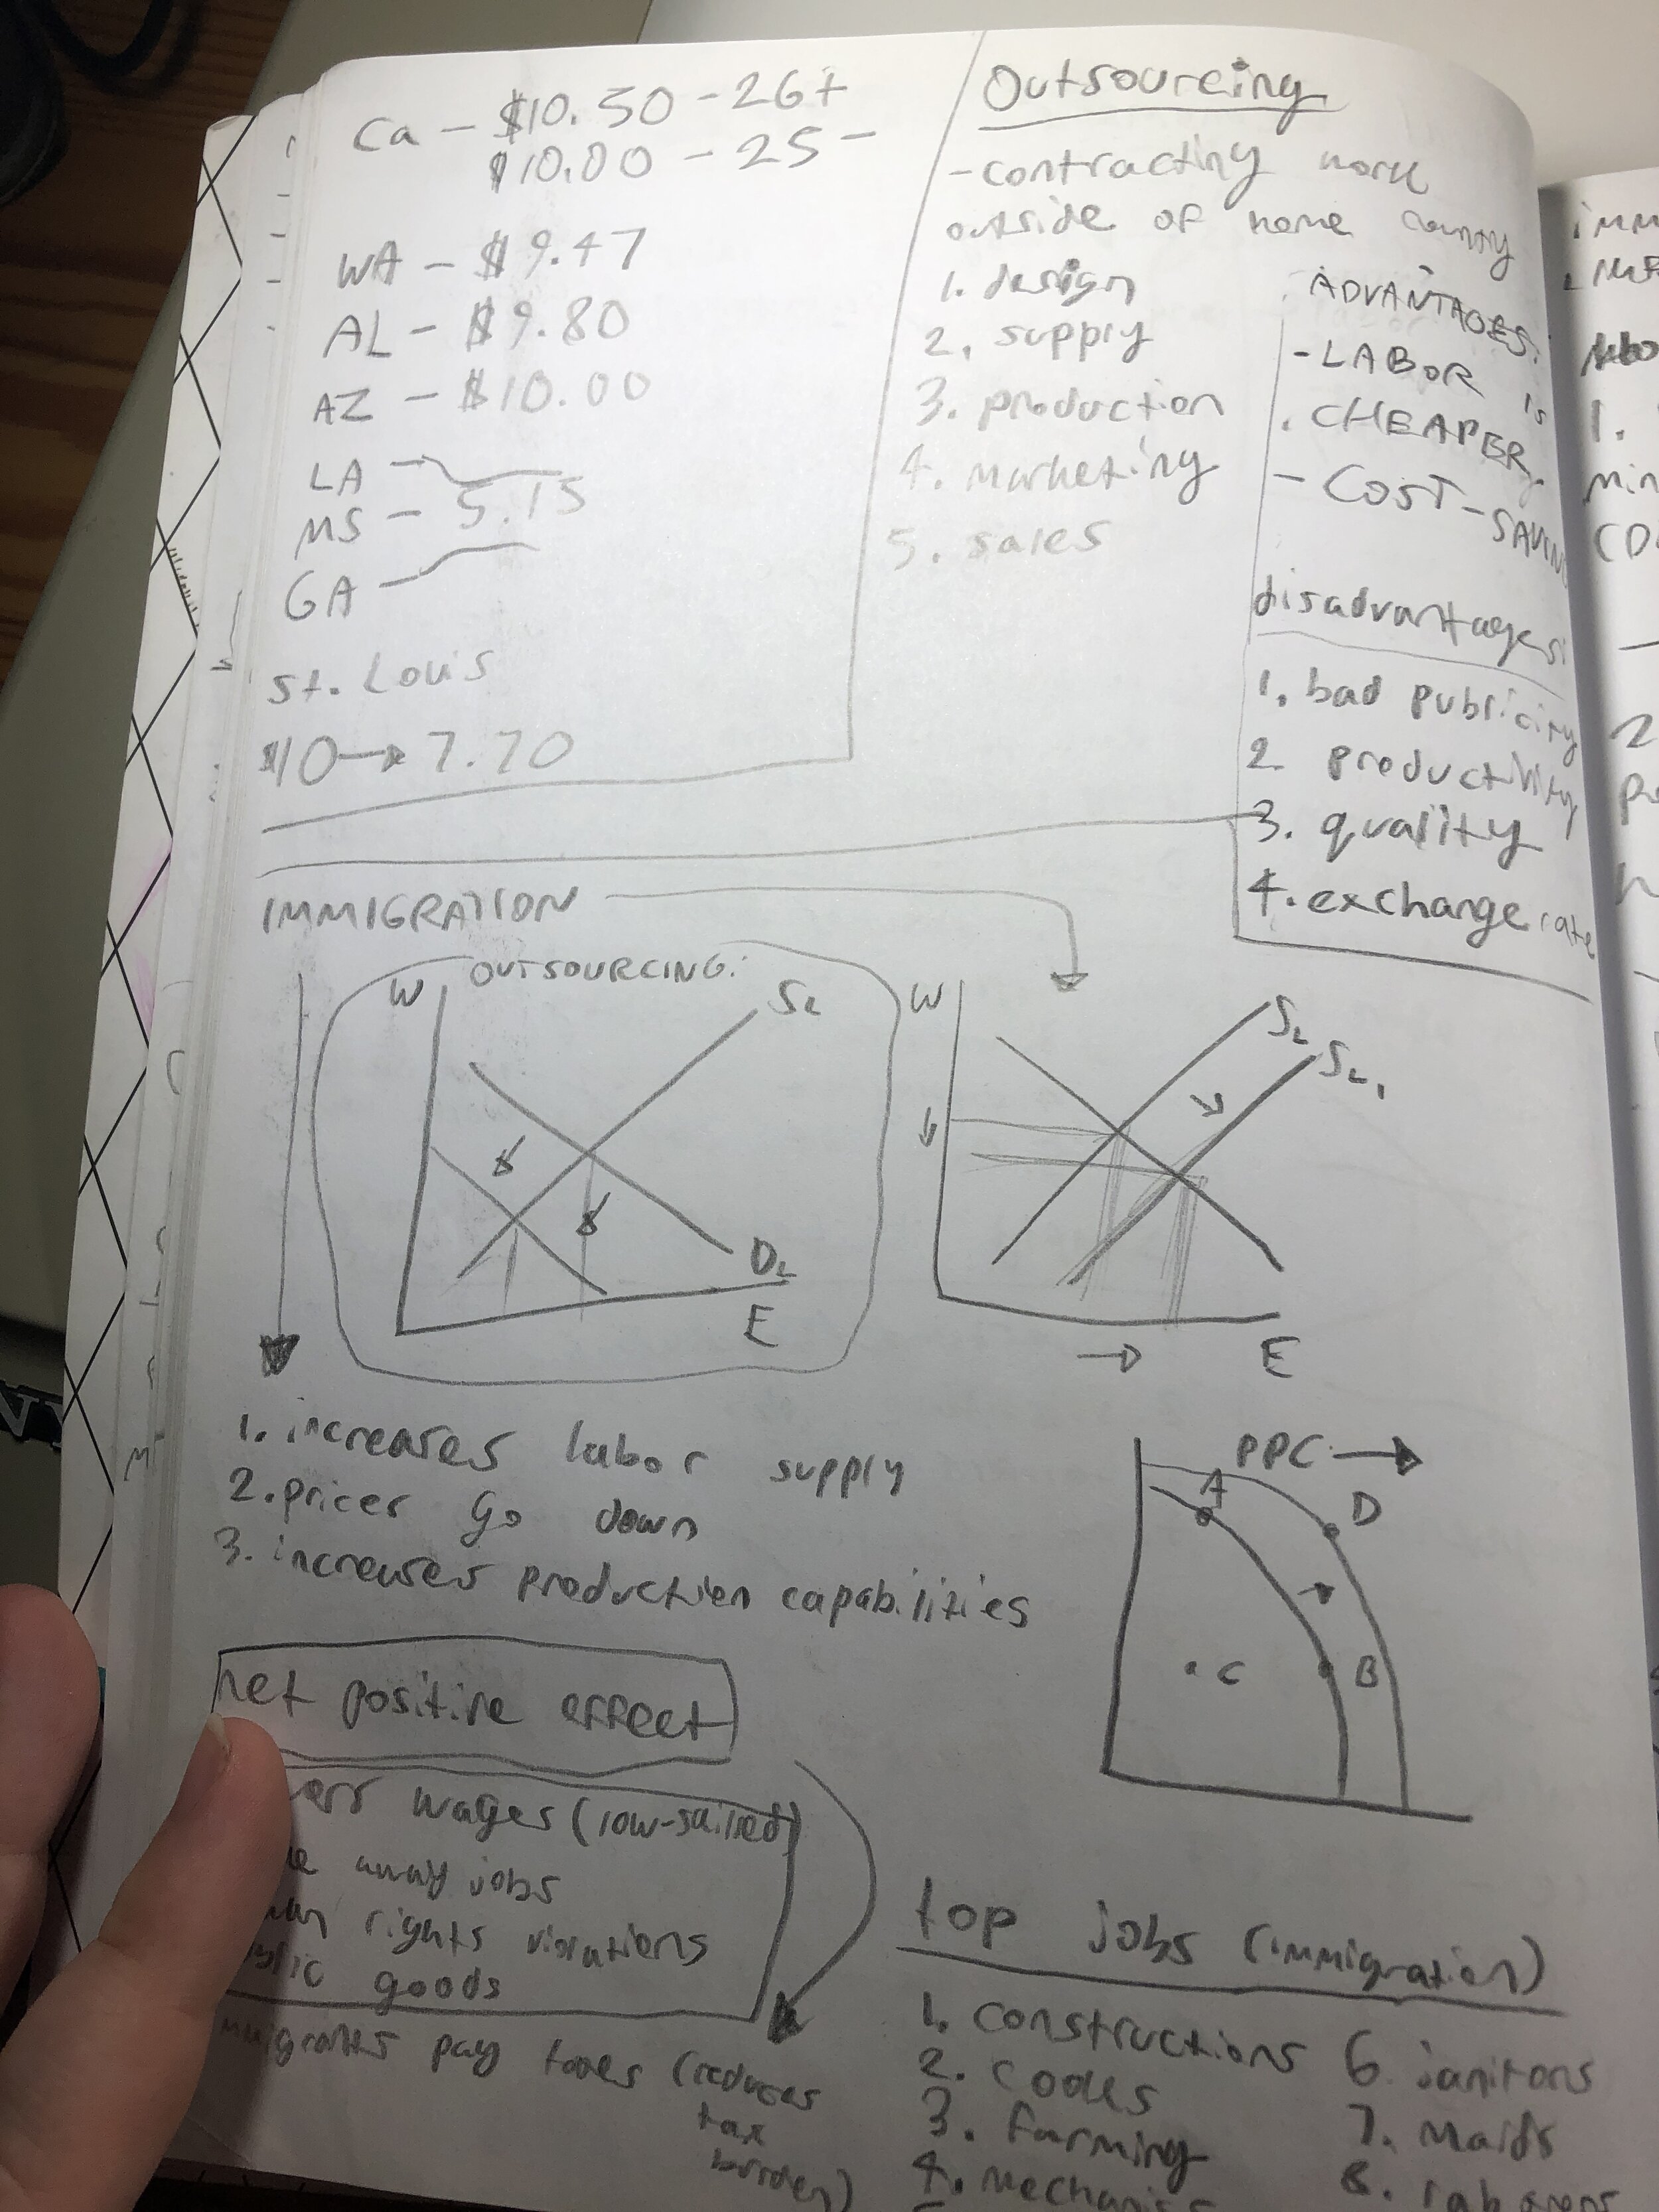 Ca – $10.50 – 26+
$10.00 – 25 –
WA – $9.47
AL – $9.80
AZ – $10.00
LA –
MS – 5.15
GA
St. Louis
$10 → 7.70
Outsourcing
- contracting work
outside of home country
1. design
2. supply
3. production
4. marketing
5. sales
ADVANTAGES:
- LABOR IS
CHEAPER
- COST-SAVIN
disadvantages:
1. bad publicity
2 productivity
3. quality
4. exchange rate
IMMIGRATION
OUTSOURCING:
W
SL
DL
E
W
SL
SL1
E
1. increases labor supply
2. prices go down
3. increases production capabilities
PPC →
A
D
C
B
net positive effect
wages (low-skilled)
away jobs
rights violations
goods
pay taxes (reduces
tax
burden)
top jobs (immigration)
1. constructions
2. cooks
3. farming
4.
6. janitors
7. maids
8.